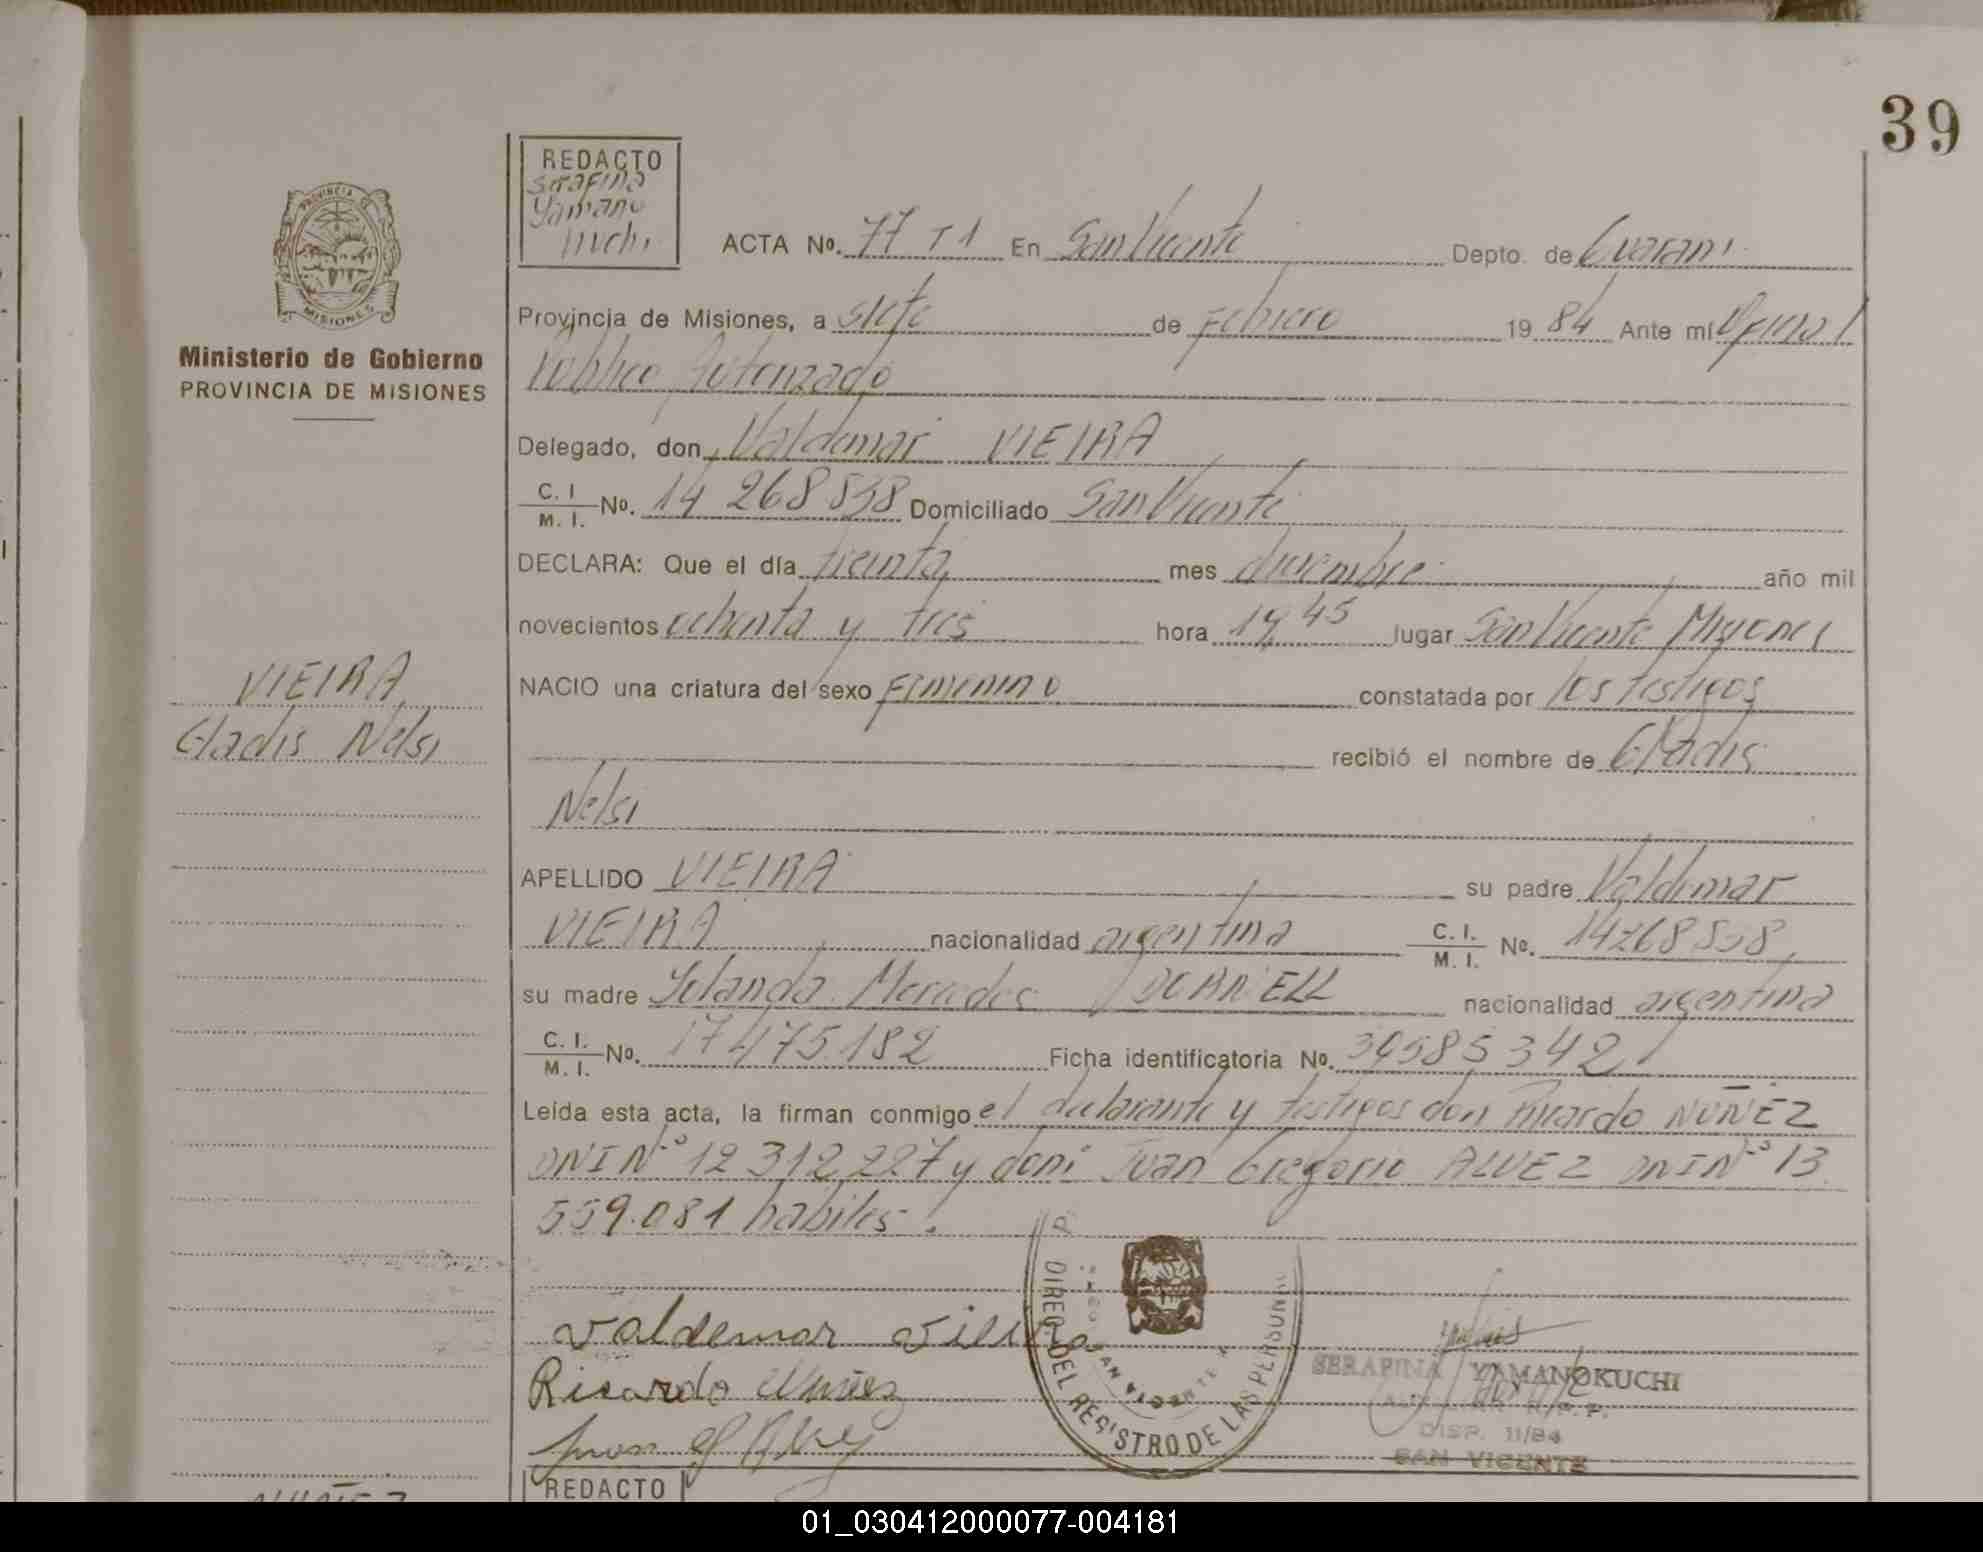 39
REDACTO
Serafina
Yamano
kuchi
PROVINCIA DE
MISIONES
Ministerio de Gobierno
PROVINCIA DE MISIONES
VIEIRA
Gladis Nelsi
ACTA No. 77 T1 En San Vicente Depto. de Guarani
Provincia de Misiones, a siete de Febrero 19 84 Ante mí Oficial
Público Autorizado
Delegado, don Valdemar VIEIRA
C. I. M. I. No. 14 268 538 Domiciliado San Vicente
DECLARA: Que el día treinta mes diciembre año mil
novecientos ochenta y tres hora 19,45 lugar San Vicente Misiones
NACIO una criatura del sexo Femenino constatada por los testigos
recibió el nombre de Gladis
Nelsi
APELLIDO VIEIRA su padre Valdemar
VIEIRA nacionalidad argentina C. I. M. I. No. 14268538
su madre Yolanda Mercedes DORNELL nacionalidad argentina
C. I. M. I. No. 17 475.182 Ficha identificatoria No. 30585342
Leída esta acta, la firman conmigo el declarante y testigos don Ricardo NUÑEZ
DNI Nº 12 312 227 y don Juan Gregorio ALVEZ DNI Nº 13
559.081 habiles.
Valdemar Vieira
Ricardo Nuñez
Juan G Alvez
DIREC. DEL REGISTRO DE LAS PERSONAS
SAN VICENTE
SERAFINA YAMANOKUCHI
DISP. 11/84
SAN VICENTE
REDACTO
01_030412000077-004181